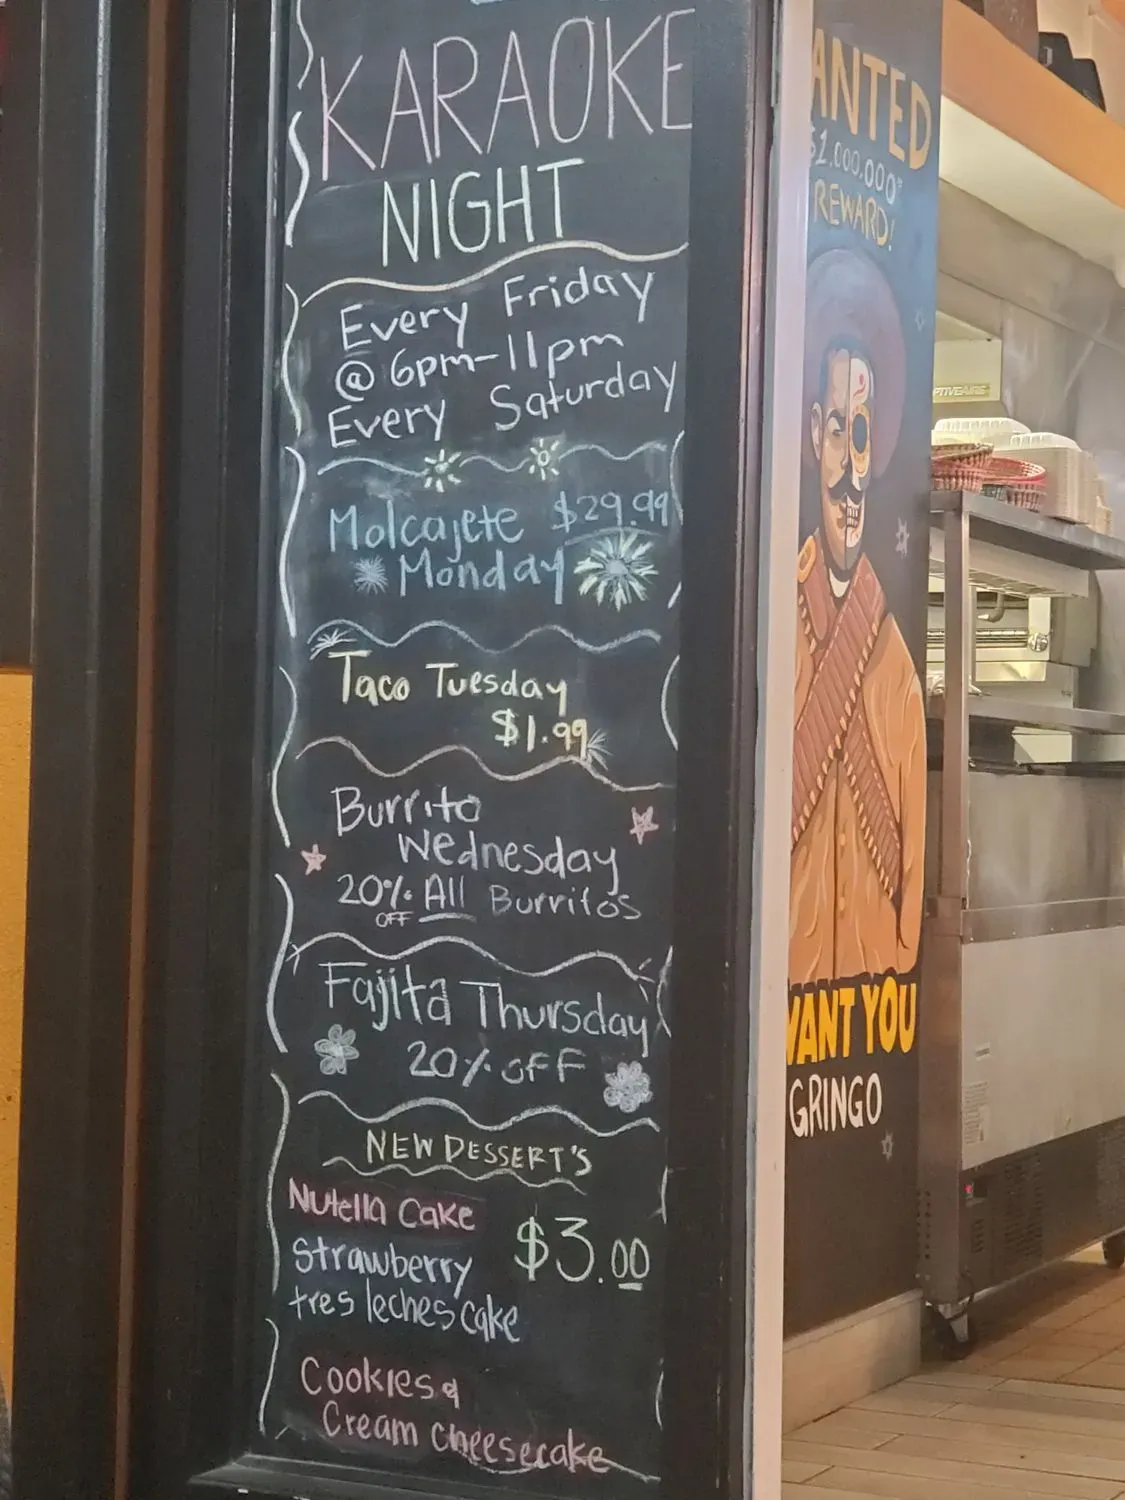 KARAOKE
NIGHT
Every Friday
@ 6pm-11pm
Every Saturday
Molcajete $29.99
Monday
Taco Tuesday
$1.99
Burrito
Wednesday
20% All Burritos
OFF
Fajita Thursday
20% OFF
NEW DESSERT'S
Nutella Cake
$3.00
Strawberry
tres leches cake
Cookies &
Cream cheesecake
ANTED
$1,000,000
REWARD!
WANT YOU
GRINGO